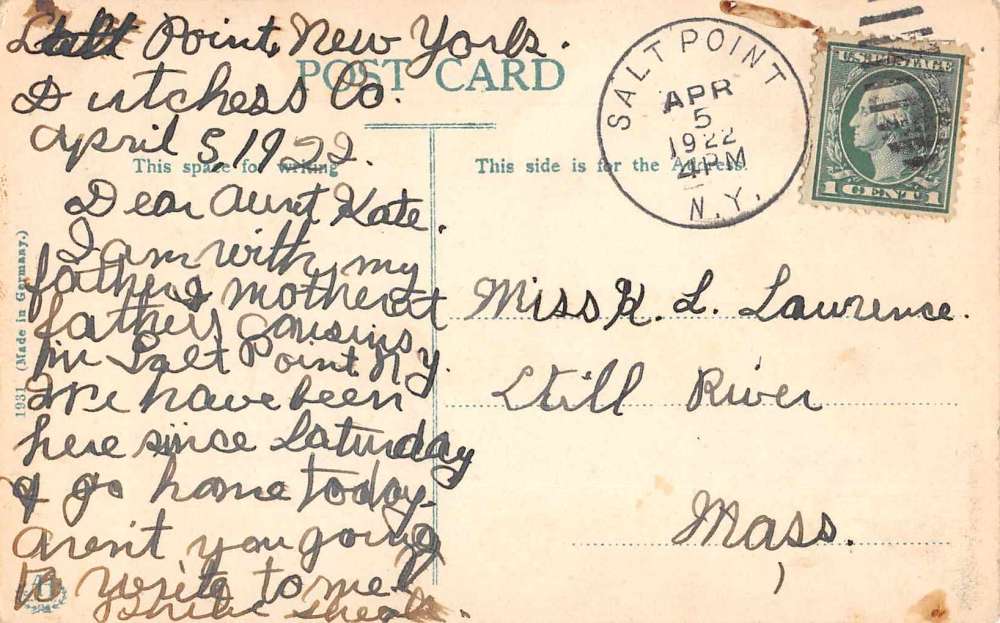 Salt Point, New York.
POST CARD
Dutchess Co.
April 5, 1922.
This space for writing
Dear Aunt Kate.
I am with my
father & mother at
fathers cousins
in Salt Point N.Y.
We have been
here since Saturday
& go home today.
Aren't you going
to write to me?
1931 (Made in Germany.)
This side is for the Address.
SALT POINT
APR
5
1922
4 PM
N.Y.
U.S. POSTAGE
1 CENT 1
Miss K. L. Lawrence.
Still River
Mass.